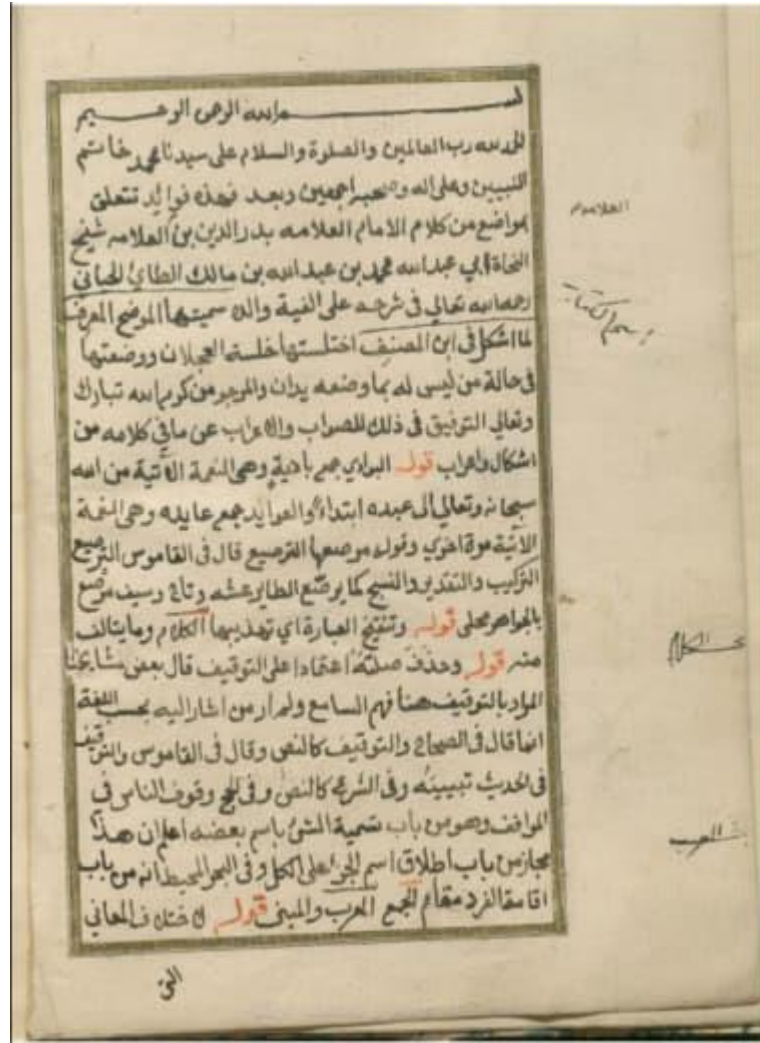 بسم الله الرحمن الرحيم
الحمد لله رب العالمين والصلوة والسلام على سيدنا محمد خاتم
النبيين وعلى اله وصحبه اجمعين وبعد فهذه فوائد تتعلق
بمواضع من كلام الامام العلامه بدر الدين بن العلامه شيخ
النحاة ابي عبد الله محمد بن عبد الله بن مالك الطائي الجياني
رحمه الله تعالى في شرحه على الفية والده سميتها الموضح المعرف
لما اشكل في ابن المصنف اختلستها خلسة العجلان ووضعتها
في حالة من ليس له بما وضعه يدان والمرجو من كرم الله تبارك
وتعالى التوفيق في ذلك للصواب والاعراب عن ما في كلامه من
اشكال واعراب قوله البوادي جمع بادية وهي النعمة الآتية من الله
سبحانه وتعالى الى عبده ابتداء والعوايد جمع عايده وهي النعمة
الآتية مرة اخرى وقوله مرصعها الترصيع قال في القاموس الترصيع
التركيب والتقدير والنسج كما يرصّع الطاير عشه وتاج وسيف مرصع
بالجواهر محلى قوله وتنقيح العبارة اي تهذيبها الكلام وما يتالف
منه قوله وحذف صلته اعتمادا على التوقيف قال بعض مشايخنا
المراد بالتوقيف هنا فهم السامع ولم ار من اشار اليه بحسب اللغة
انما قال في الصحاح والتوقيف كالنص وقال في القاموس والتوقيف
في الحديث تبيينه وفي الشرع كالنص وفي الحج وقوف الناس في
المواقف وهو من باب تسمية الشئ باسم بعضه اعلم ان هذا
مجاز من باب اطلاق اسم الجزء على الكل وفي البحر المحيط انه من باب
اقامة الفرد مقام الجمع المعرب والمبنى قوله المعاني
العلامه
اسم الكتاب
الكلام
المعرب